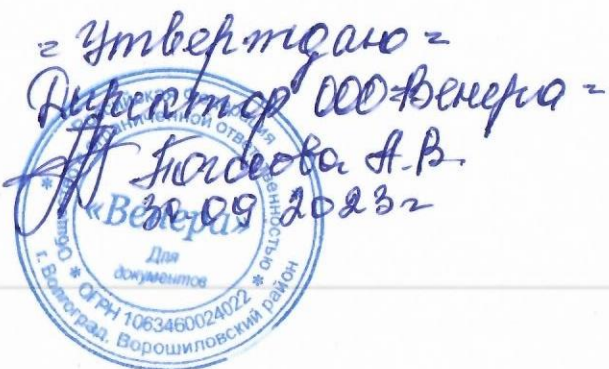 = Утверждаю =
Директор ООО «Венера»
А.В.
30.09 2023г
Российская Федерация
ограниченной ответственностью
«Венера»
Для
документов
* ОГРН 1063460024022 *
г. Волгоград, Ворошиловский район